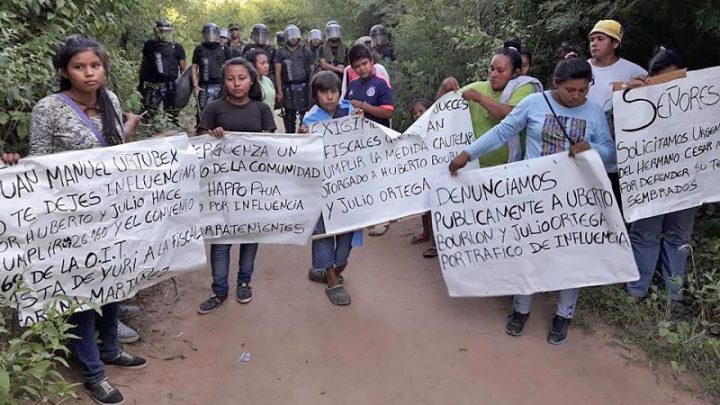 UAN MANUEL URTUBEX
O TE DEJES INFLUENCIAR
POR HUBERTO y JULIO HACE
UMPLIR 26.160 y EL CONVENIO
169 DE LA O.I.T.
ASTA DE YURI A LA FISCAL
MARTINEZ
ERGUENZA UN
O DE LA COMUNIDAD
HAPPO PHUA
POR INFLUENCIA
RRATENIENTES
EXIGIMOS JUECES
FISCALES HAGAN
UMPLIR LA MEDIDA CAUTELAR
OTORGADO A HUBERTO BOUR
y JULIO ORTEGA
DENUNCIAMOS
PUBLICAMENTE A UBERTO
BOURLON y JULIO ORTEGA
POR TRAFICO DE INFLUENCIA
SEÑORES
SOLICITAMOS
DEL HERMANO CESAR A
POR DEFENDER SU TE
SEMBRADOS